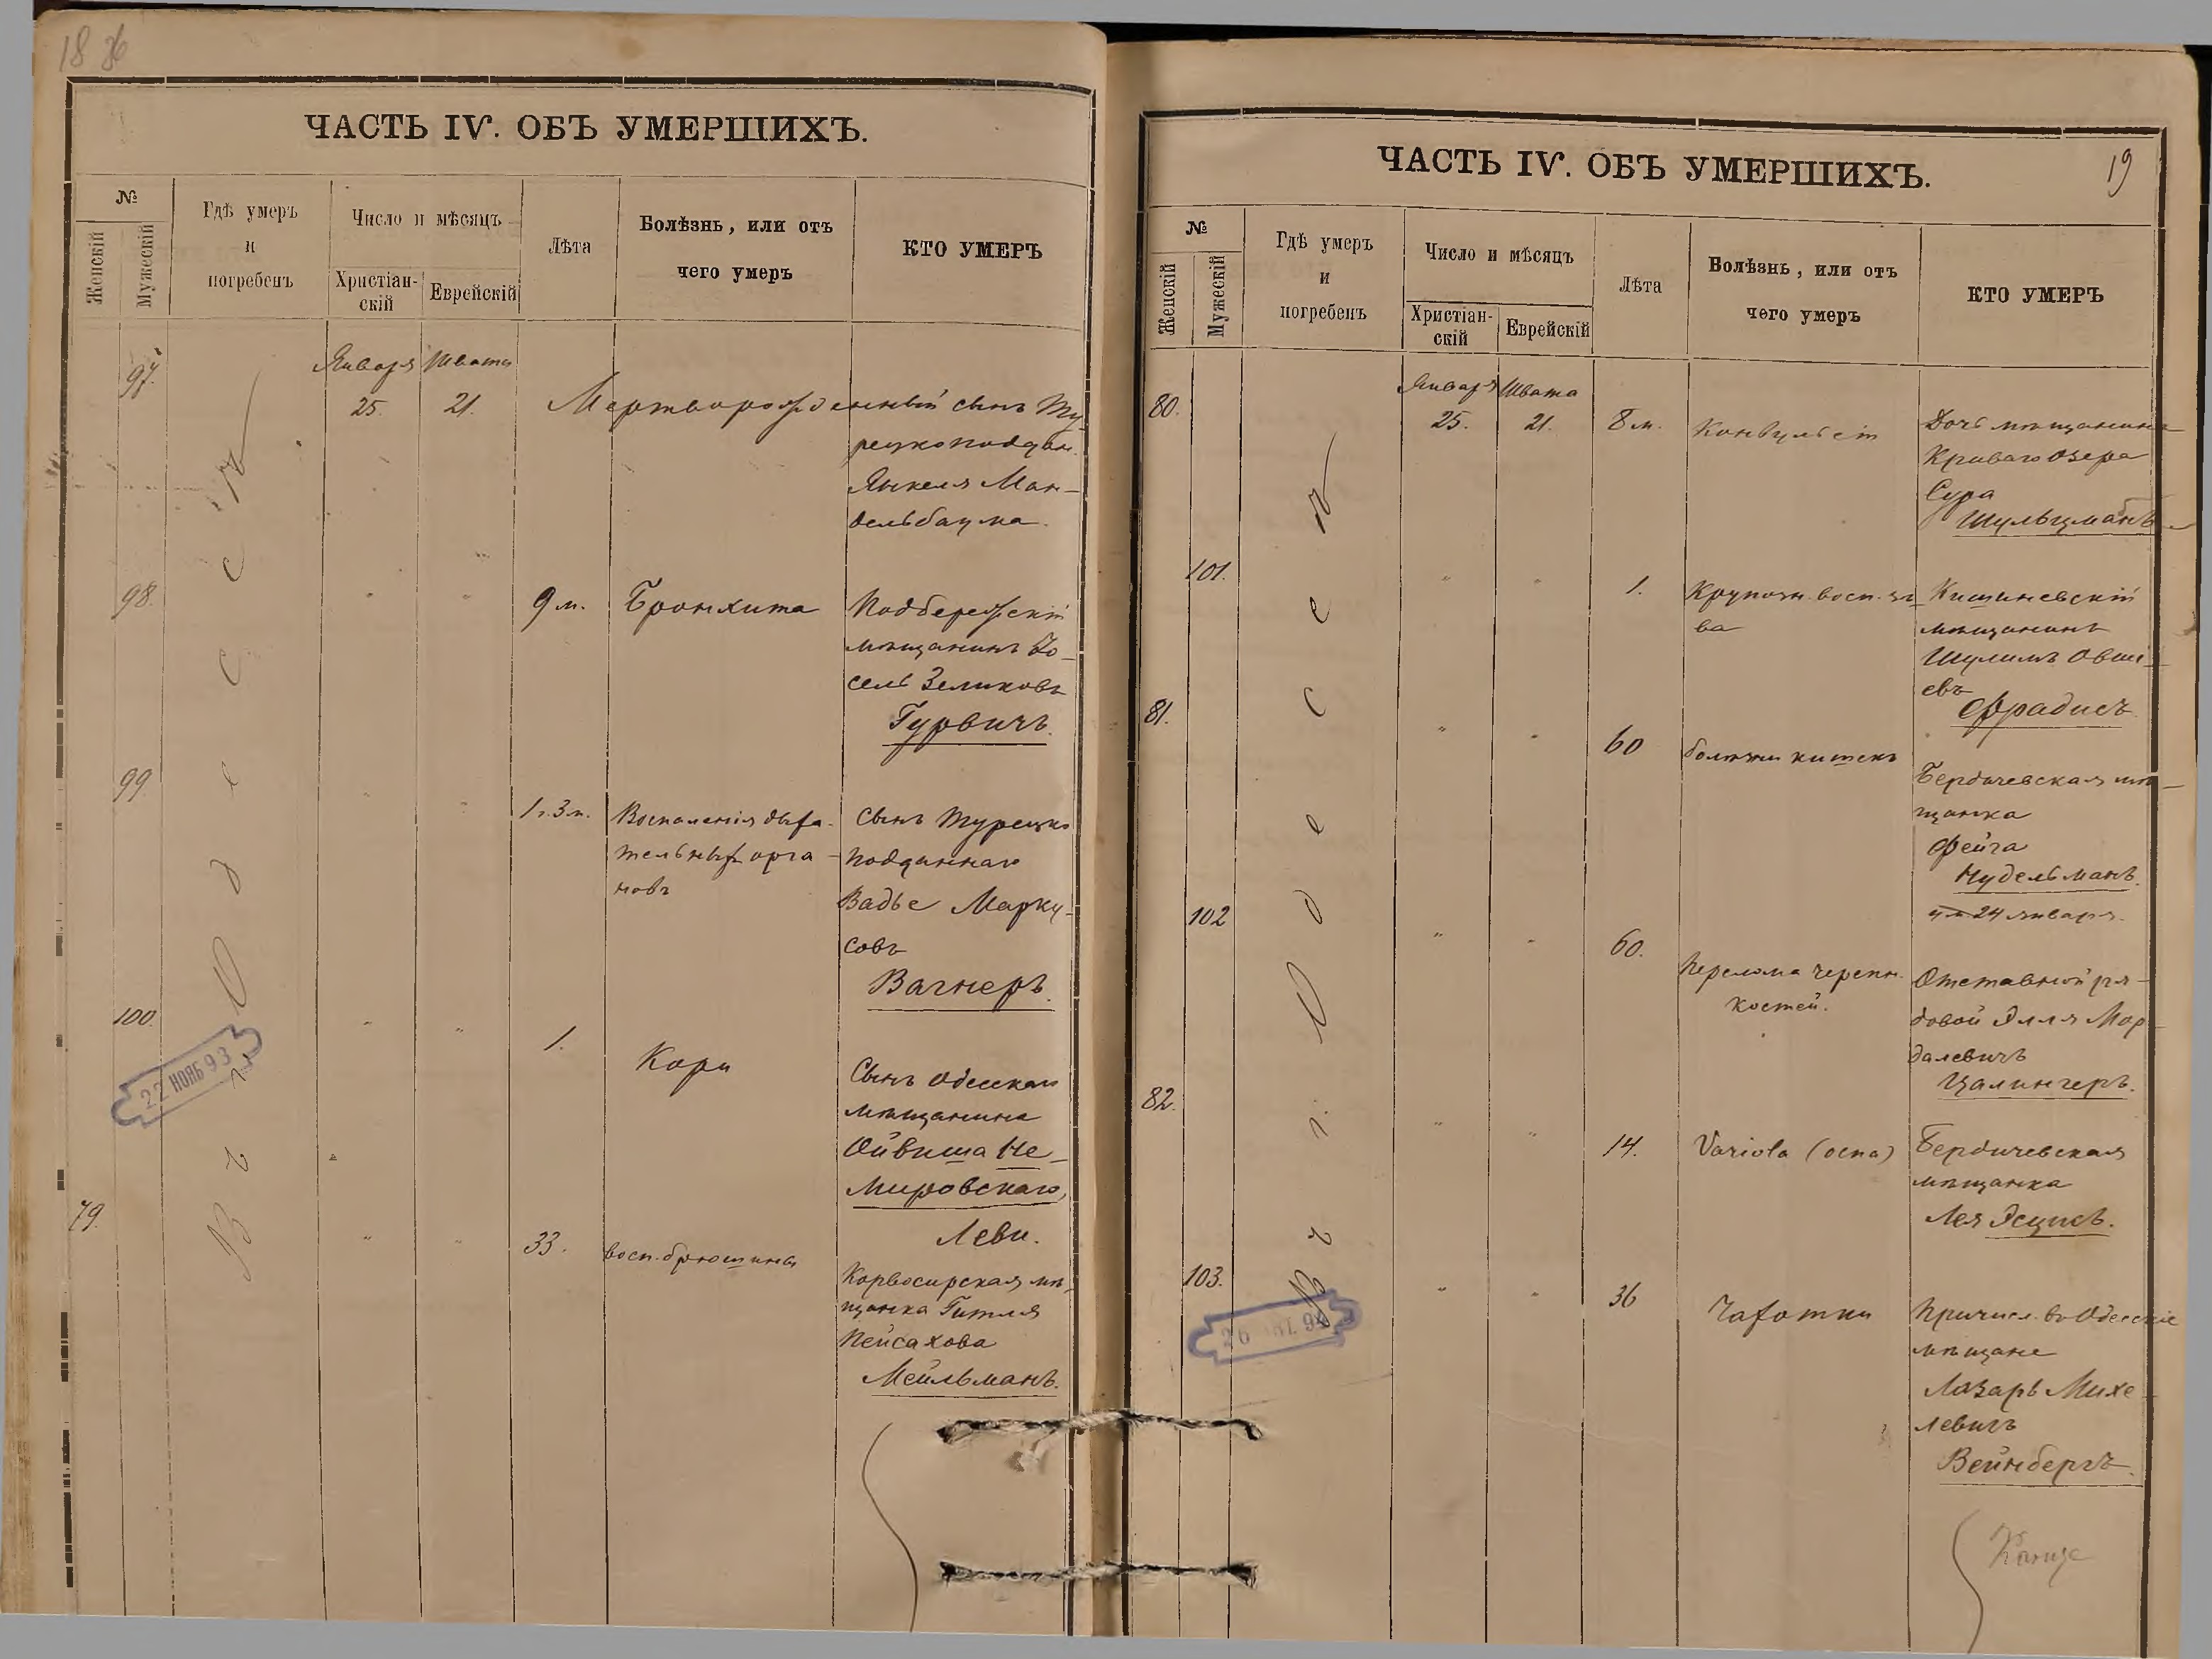 18 36
ЧАСТЬ IV. ОБЪ УМЕРШИХЪ.
№
Женскій
Мужескій
Гдѣ умеръ
и
погребенъ
Число и мѣсяцъ
Христіан-
скій
Еврейскій
Лѣта
Болѣзнь, или отъ
чего умеръ
КТО УМЕРЪ
Въ г. Одессѣ
97.
Января Швата
25. 21.
Мертворожденный сынъ Ту-
рецкоподдан.
Янкеля Ман-
дельбаума.
98. " " 9 м. Бронхита Подбережскій
мѣщанинъ Іо-
сель Зеликовъ
Гурвичъ.
99 " " 1 г. 3 м. Воспаленія дыха-
тельныхъ орга-
новъ
Сынъ Турецко
подданнаго
Вадье Марку-
совъ
Вагнеръ.
100. " " 1. Кори
Сынъ Одесскаго
мѣщанина
Ойвиша Не-
мировскаго,
Леви.
22 НОЯБ 93
79. " " 33. восп. брюшины
мѣ-
щанка Гитля
Пейсахова
Мейльманъ.
19
ЧАСТЬ IV. ОБЪ УМЕРШИХЪ.
№
Женскій
Мужескій
Гдѣ умеръ
и
погребенъ
Число и мѣсяцъ
Христіан-
скій
Еврейскій
Лѣта
Болѣзнь, или отъ
чего умеръ
КТО УМЕРЪ
Въ г. Одессѣ
Января Швата
80. 25. 21. 8 м. Конвульсій
Дочь мѣщанина
Криваго Озера
Сура
Шульцманъ
101. " " 1. Крупозн. восп. зѣ-
ва
Кишиневскій
мѣщанинъ
Шулимъ Овші-
евъ
Фрадисъ.
81. " " 60 болѣзни кишекъ
Бердичевская мѣ-
щанка
Фейга
Нудельманъ.
24 января.
102 " " 60. Перелома черепн.
костей.
Отставной ря-
довой Элля Мор-
далевичъ
Цалингеръ.
82. " " 14. Variola (оспа)
Бердичевская
мѣщанка
Лея Эсцисъ.
103. " " 36 Чахотки
Причисл. въ Одесскіе
мѣщане
Лазарь Михе-
левичъ
Вейнбергъ.